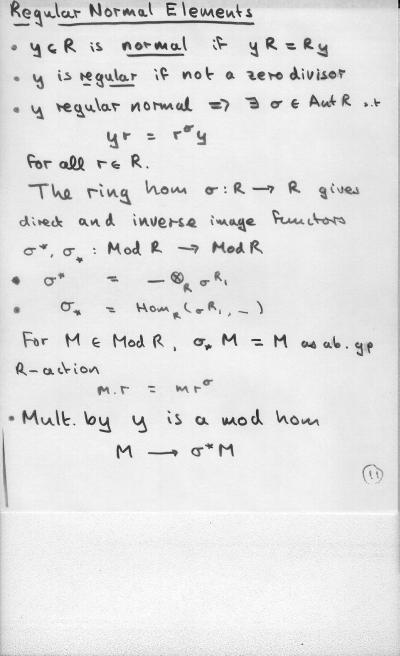 Regular Normal Elements
• y ∈ R is normal if yR = Ry
• y is regular if not a zero divisor
• y regular normal ⇒ ∃ σ ∈ Aut R s.t
yr = r^σ y
for all r ∈ R.
The ring hom σ : R → R gives
direct and inverse image functors
σ*, σ_* : Mod R → Mod R
• σ* = — ⊗_R σR₁
• σ_* = Hom_R (σR₁, —)
For M ∈ Mod R, σ_* M = M as ab. gp
R-action
m.r = mr^σ
• Mult. by y is a mod hom
M → σ*M
11